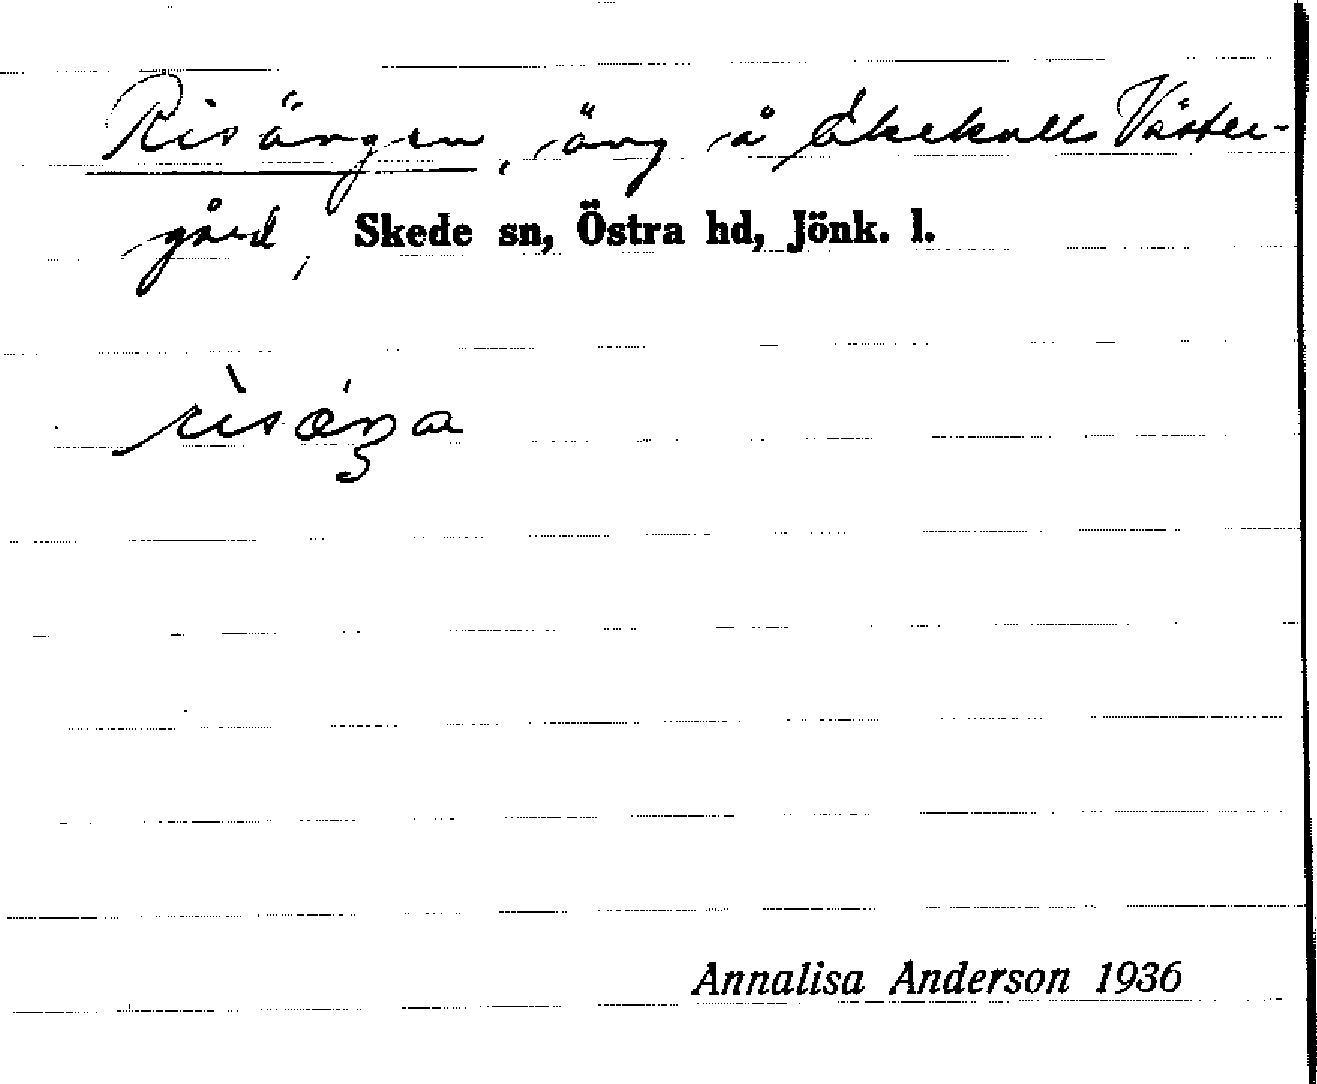 Risängen, äng å Ekekulls Väster-
gård, Skede sn, Östra hd, Jönk. l.
Annalisa Anderson 1936